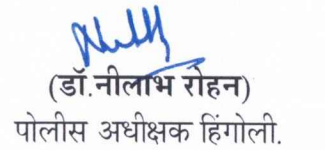 (डॉ.नीलाभ रोहन)
पोलीस अधीक्षक हिंगोली.